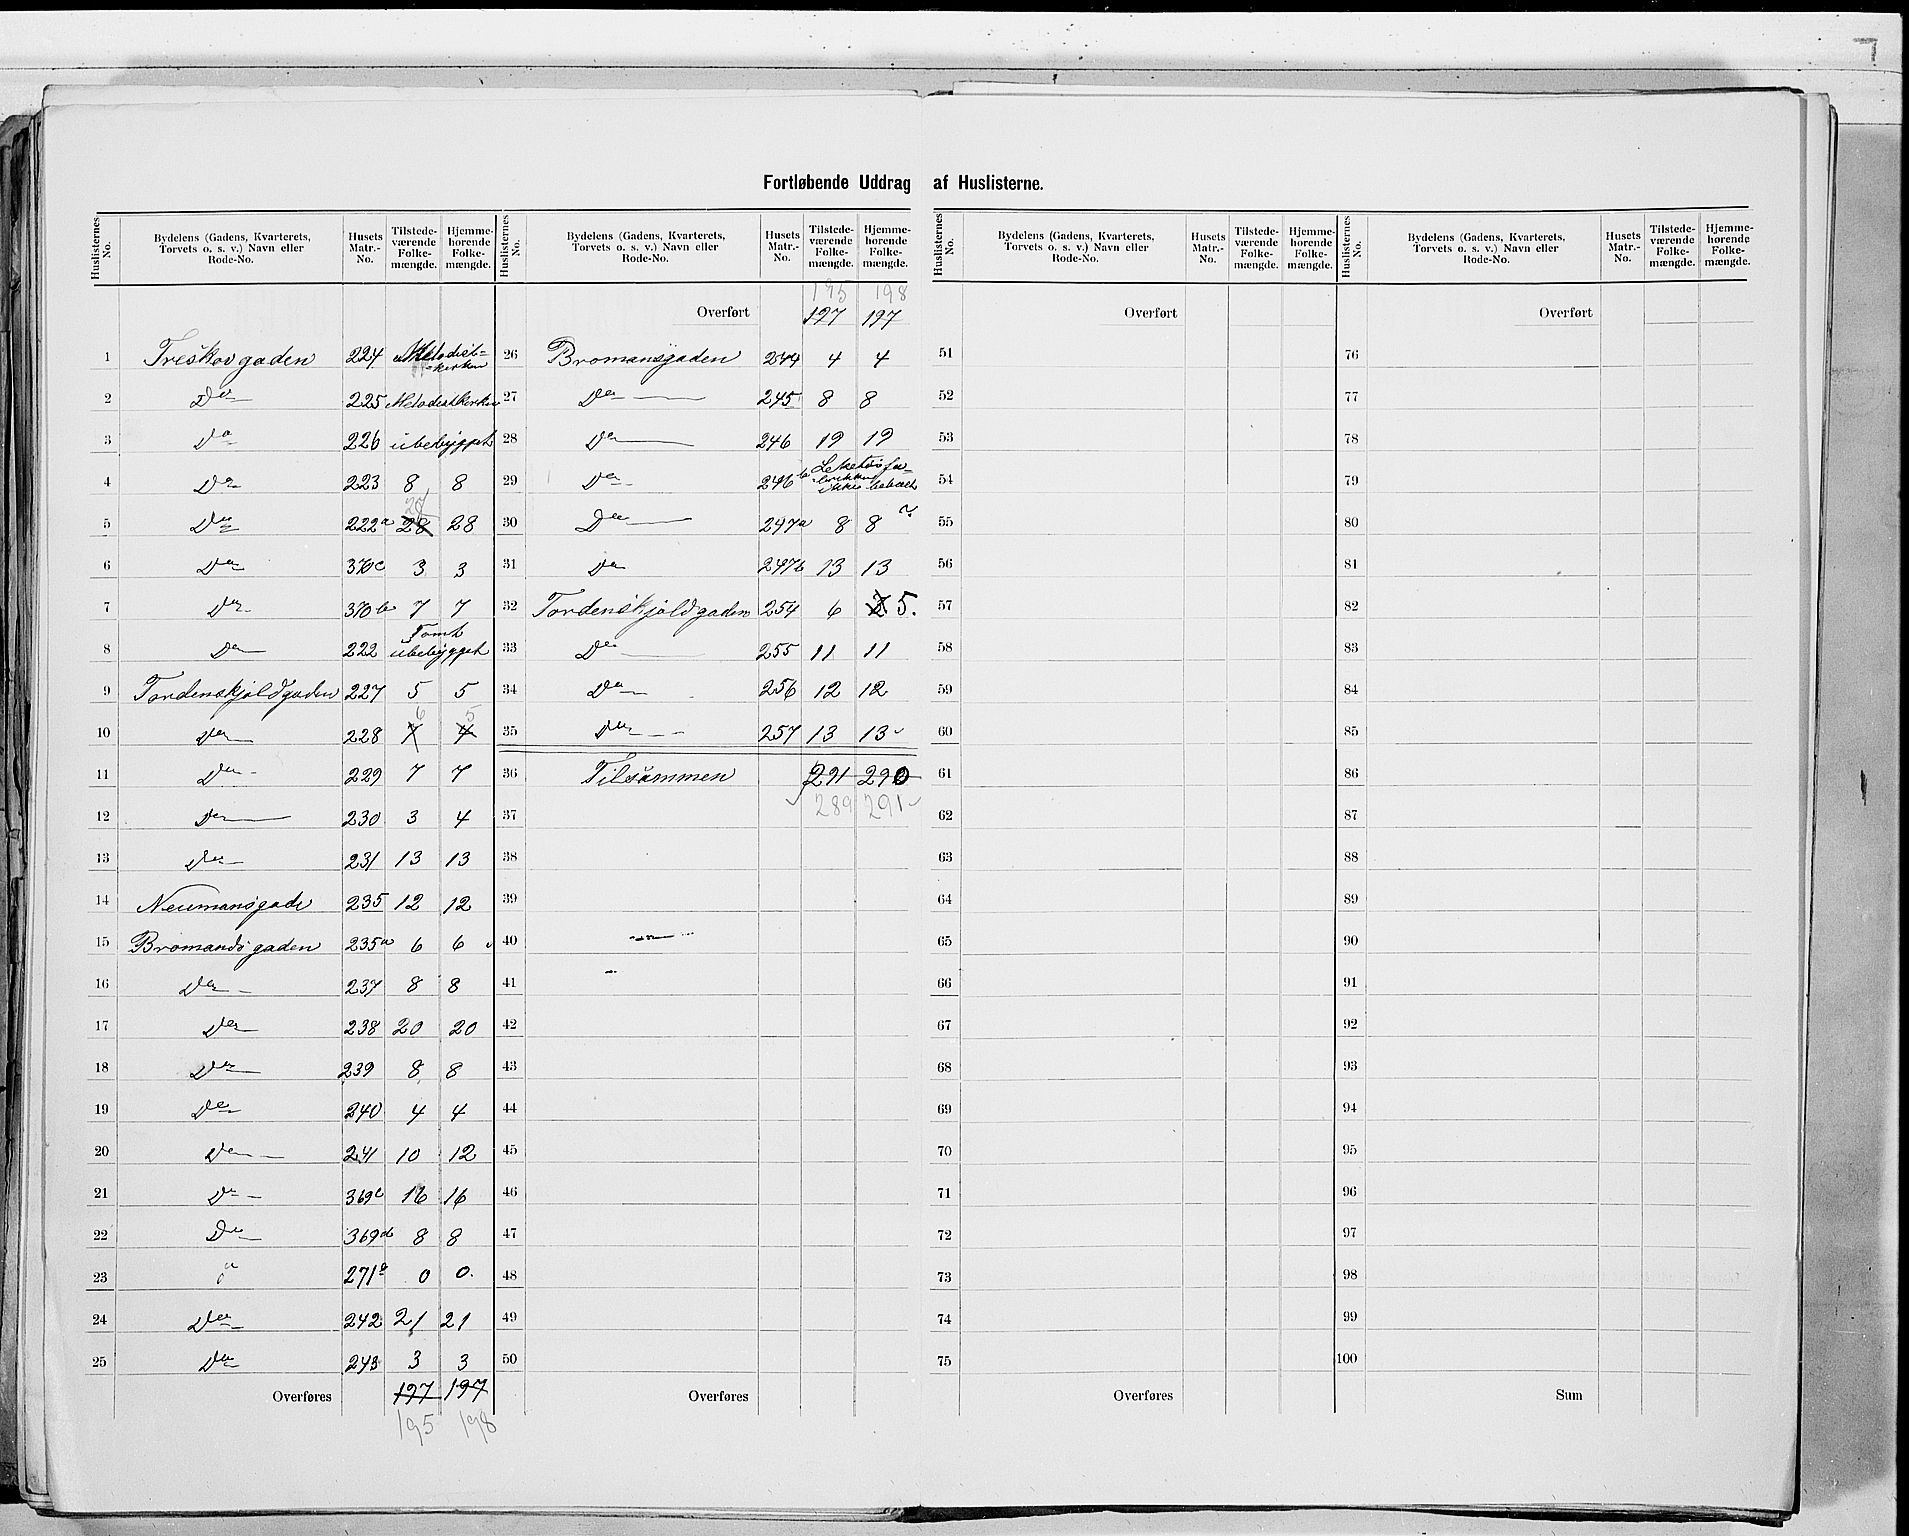 Fortløbende Uddrag af Huslisterne.
Huslisternes No. | Bydelens (Gadens, Kvarterets, Torvets o. s. v.) Navn eller Rode-No. | Husets Matr.-No. | Tilstedeværende Folkemængde. | Hjemmehørende Folkemængde.
1 Treskovgaden 224 Metodist-kirken
2 Do 225 Metodistkirken
3 Do 226 ubebygget
4 Do 223 8 8
5 Do 222a 28 27 28
6 Do 370c 3 3
7 Do 370b 7 7
8 Do 222 Tomt ubebygget
9 Tordenskjoldgaden 227 5 5
10 Do 228 7 6 4 5
11 Do 229 7 7
12 Do 230 3 4
13 Do 231 13 13
14 Neumansgade 235 12 12
15 Bromandsgaden 235a 6 6
16 Do 237 8 8
17 Do 238 20 20
18 Do 239 8 8
19 Do 240 4 4
20 Do 241 10 12
21 Do 369c 16 16
22 Do 369d 8 8
23 271a 0 0.
24 Do 242 21 21
25 Do 243 3 3
Overføres 197 197
195 198
Huslisternes No. | Bydelens (Gadens, Kvarterets, Torvets o. s. v.) Navn eller Rode-No. | Husets Matr.-No. | Tilstedeværende Folkemængde. | Hjemmehørende Folkemængde.
195 198
Overført 197 197
26 Bromansgaden 244 4 4
27 Do 245 8 8
28 Do 246 19 19
29 Do 246b Leketøisfabrikken ikke beboet
30 Do 247a 8 8
31 Do 247b 13 13
32 Tordenskjoldgaden 254 6 7 5.
33 Do 255 11 11
34 Do 256 12 12
35 Do 257 13 13
36 Tilsammen 291 290
37 289 291
38
39
40
41
42
43
44
45
46
47
48
49
50
Overføres
Huslisternes No. | Bydelens (Gadens, Kvarterets, Torvets o. s. v.) Navn eller Rode-No. | Husets Matr.-No. | Tilstedeværende Folkemængde. | Hjemmehørende Folkemængde.
Overført
51
52
53
54
55
56
57
58
59
60
61
62
63
64
65
66
67
68
69
70
71
72
73
74
75
Overføres
Huslisternes No. | Bydelens (Gadens, Kvarterets, Torvets o. s. v.) Navn eller Rode-No. | Husets Matr.-No. | Tilstedeværende Folkemængde. | Hjemmehørende Folkemængde.
Overført
76
77
78
79
80
81
82
83
84
85
86
87
88
89
90
91
92
93
94
95
96
97
98
99
100
Sum